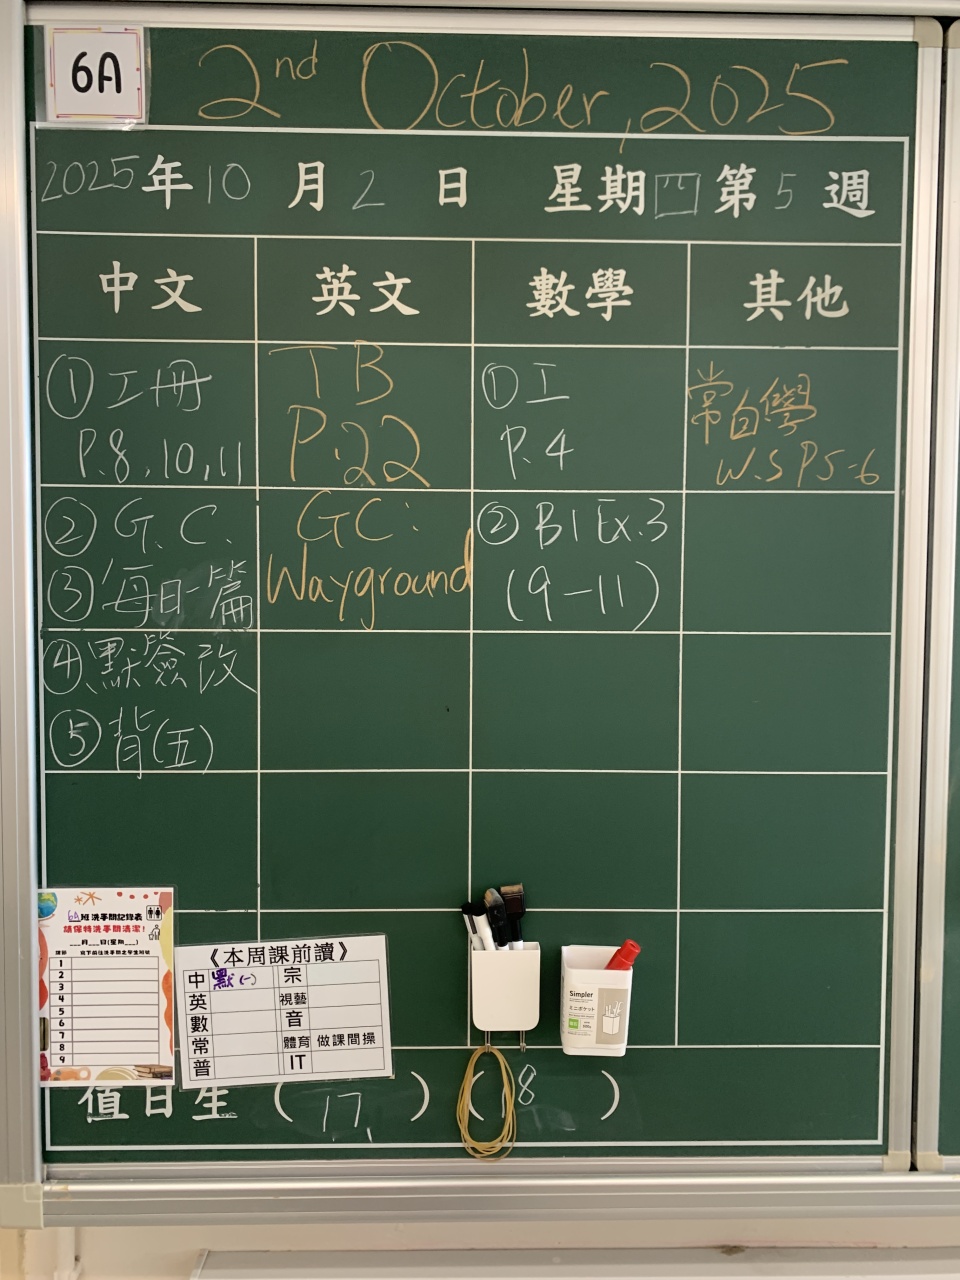 6A
2nd October, 2025
2025年10月2日 星期四第5週
中文 英文 數學 其他
①工冊
P.8,10,11
②G.C.
③每日一篇
④默簽改
⑤背(五)
TB
P.22
GC:
Wayground
①工
P.4
②B1 Ex.3
(9-11)
常自學
W.S P5-6
6A班洗手間記錄表
請保持洗手間清潔!
___月___日(星期___)
1
2
3
4
5
6
7
8
9
《本周課前讀》
中 默(一) 宗
英 視藝
數 音
常 體育 做課間操
普 IT
Simpler
ミニポケット
值日生 (17) (18)